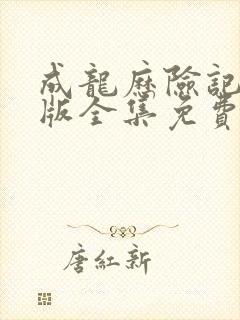 成龍歷險記
版全集免費
唐紅新